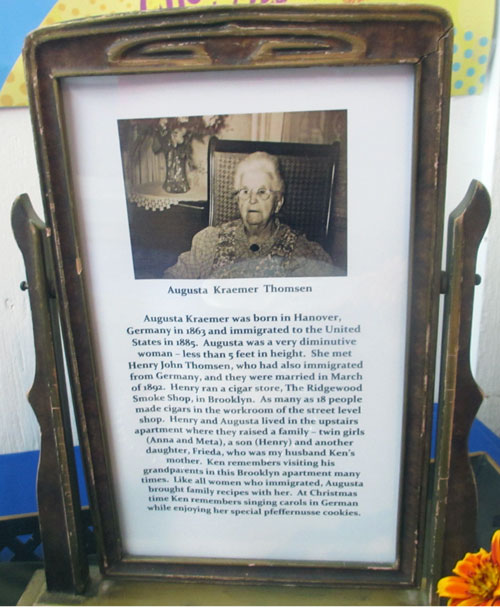 Augusta Kraemer Thomsen
Augusta Kraemer was born in Hanover,
Germany in 1863 and immigrated to the United
States in 1885. Augusta was a very diminutive
woman – less than 5 feet in height. She met
Henry John Thomsen, who had also immigrated
from Germany, and they were married in March
of 1892. Henry ran a cigar store, The Ridgewood
Smoke Shop, in Brooklyn. As many as 18 people
made cigars in the workroom of the street level
shop. Henry and Augusta lived in the upstairs
apartment where they raised a family – twin girls
(Anna and Meta), a son (Henry) and another
daughter, Frieda, who was my husband Ken's
mother. Ken remembers visiting his
grandparents in this Brooklyn apartment many
times. Like all women who immigrated, Augusta
brought family recipes with her. At Christmas
time Ken remembers singing carols in German
while enjoying her special pfeffernusse cookies.